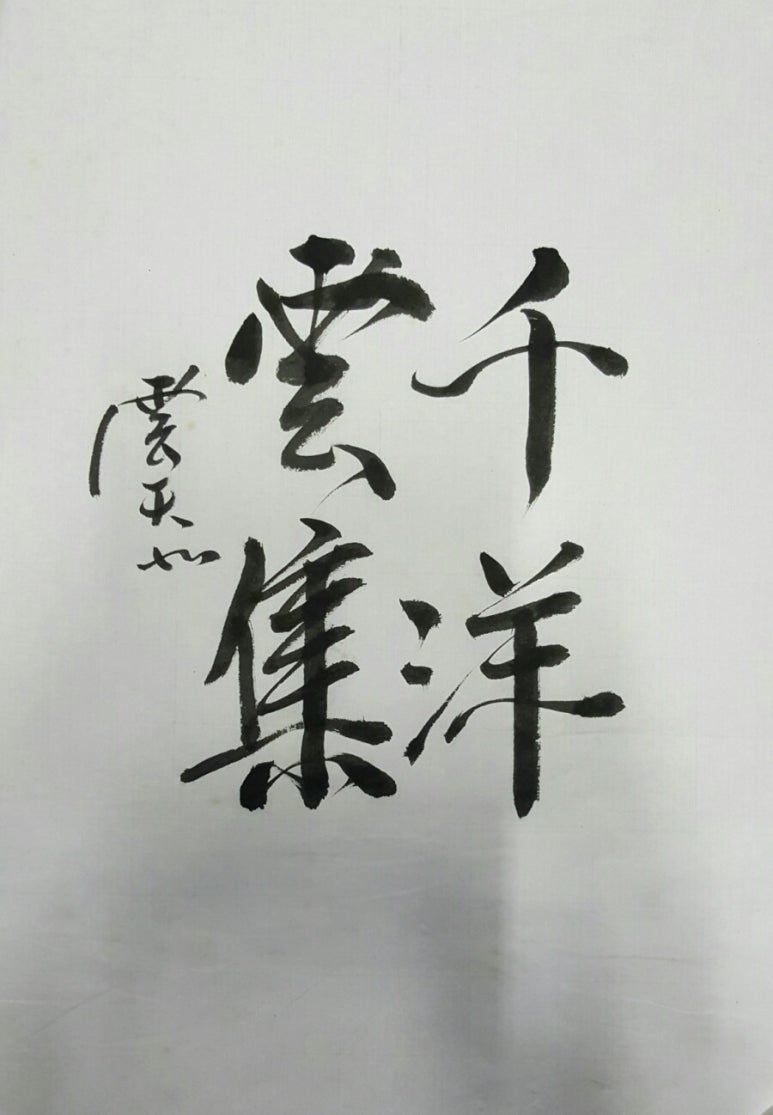 千洋
雲集
雲天如